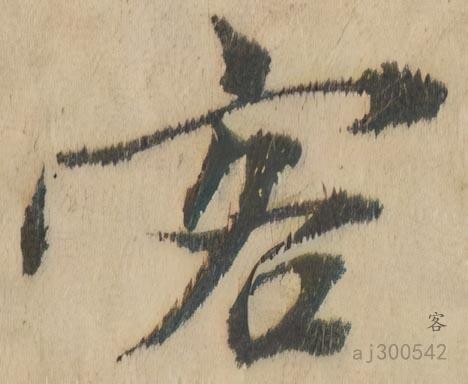 客
客
aj300542